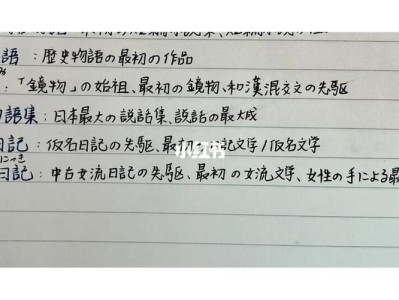 語：歴史物語の最初の作品
：「鏡物」の始祖、最初の鏡物、和漢混交文の先駆
語集：日本最大の説話集、説話の最大成
日記：仮名日記の先駆、最初 記文学/仮名文学
小红书
にっき
日記：中古女流日記の先駆、最初の女流文学、女性の手による最